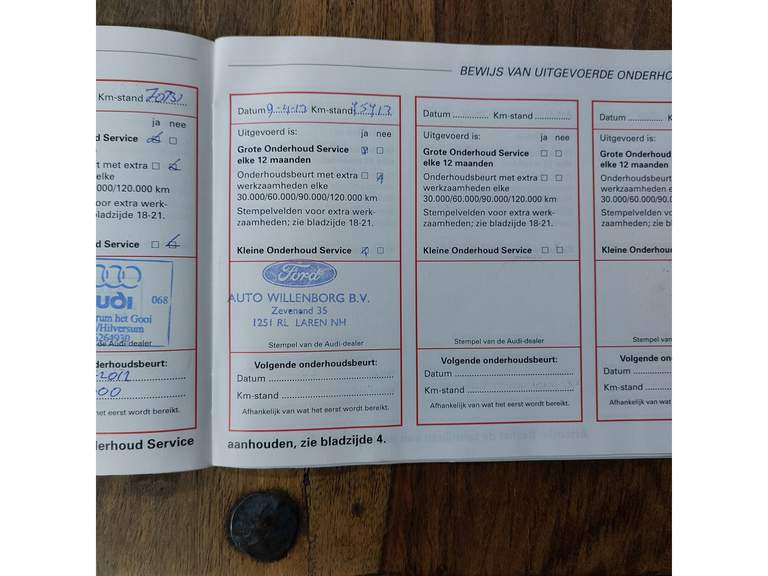 Km-stand
ja nee
d Service
t met extra
elke
.000/120.000 km
oor extra werk-
ladzijde 18-21.
d Service
Audi 068
rum het Gooi
/Hilversum
6264930
Stempel van de Audi-dealer
derhoudsbeurt:
-2012
00
t eerst wordt bereikt.
derhoud Service
BEWIJS VAN UITGEVOERDE ONDERHO
Datum 9-4-13 Km-stand
Uitgevoerd is: ja nee
Grote Onderhoud Service
elke 12 maanden
Onderhoudsbeurt met extra
werkzaamheden elke
30.000/60.000/90.000/120.000 km
Stempelvelden voor extra werk-
zaamheden; zie bladzijde 18-21.
Kleine Onderhoud Service
Ford
AUTO WILLENBORG B.V.
Zevenend 35
1251 RL LAREN NH
Stempel van de Audi-dealer
Volgende onderhoudsbeurt:
Datum
Km-stand
Afhankelijk van wat het eerst wordt bereikt.
aanhouden, zie bladzijde 4.
Datum Km-stand
Uitgevoerd is: ja nee
Grote Onderhoud Service
elke 12 maanden
Onderhoudsbeurt met extra
werkzaamheden elke
30.000/60.000/90.000/120.000 km
Stempelvelden voor extra werk-
zaamheden; zie bladzijde 18-21.
Kleine Onderhoud Service
Stempel van de Audi-dealer
Volgende onderhoudsbeurt:
Datum
Km-stand
Afhankelijk van wat het eerst wordt bereikt.
Datum Km-
Uitgevoerd is:
Grote Onderhoud
elke 12 maanden
Onderhoudsbeurt
werkzaamheden e
30.000/60.000/90.
Stempelvelden vo
zaamheden; zie bl
Kleine Onderhoud
Stempel van d
Volgende ond
Datum
Km-stand
Afhankelijk van wat het